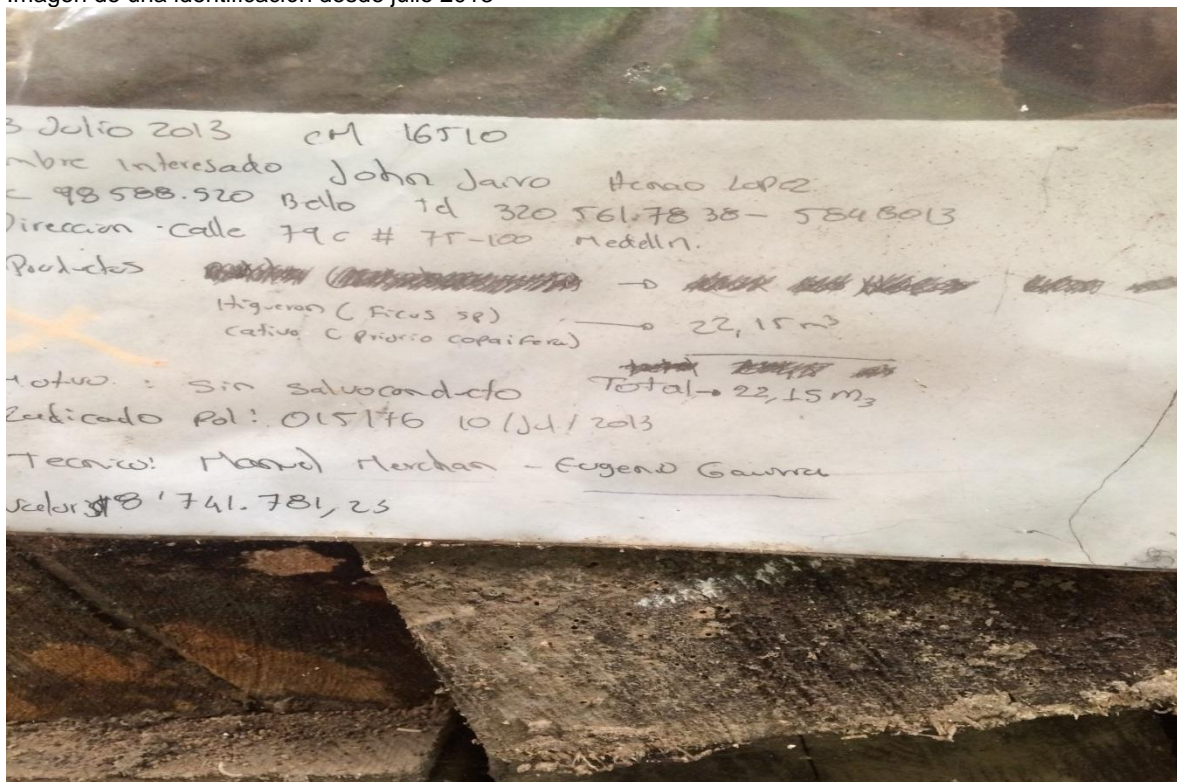 Imagen de una identificación desde julio 2013
3 Julio 2013 CM 16510
mbre Interesado John Jairo Henao Lopez
98 588.520 Bello Tel 320 561.78 38 - 584 8013
Direccion calle 79c # 75-100 Medellin.
Productos
Higueron ( Ficus sp)
cativo ( Priorio copaifera) → 22,15 m3
otivo : Sin Salvoconducto Total → 22,15 m3
Radicado Pol: 015176 10/Jul/2013
Tecnico: Manuel Merchan - Eugenio Gaviria
Valor $8'741.781,23